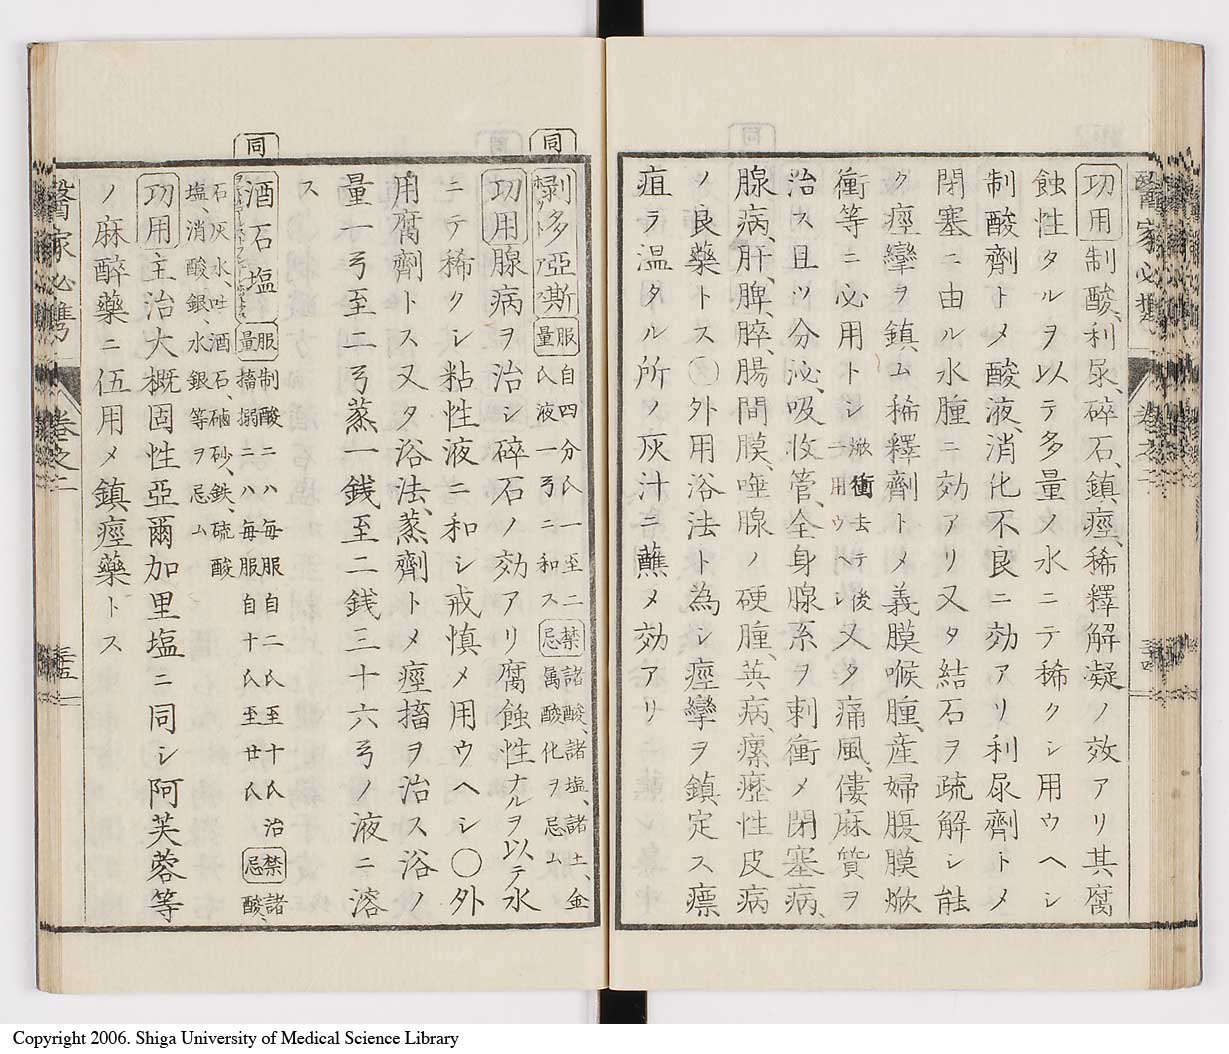 醫家必携
卷之二
功用 制酸、利尿、碎石、鎮痙、稀釋解凝ノ效アリ其腐
蝕性タルヲ以テ多量ノ水ニテ稀クシ用ウヘシ
制酸劑トメ酸液消化不良ニ効アリ利尿劑トメ
閉塞ニ由ル水腫ニ効アリ又タ結石ヲ疏解シ能
ク痙攣ヲ鎮ム稀釋劑トメ義膜喉腫、産婦腹膜焮
衝等ニ必用トシ
焮衝去テ後
ニ用ウ
又タ痛風、僂麻質ヲ
治ス且ツ分泌、吸收管、全身腺系ヲ刺衝メ閉塞病、
腺病、肝、脾、膵、腸間膜、唾腺ノ硬腫、英病、瘰癧性皮病
ノ良藥トス〇外用浴法ト為シ痙攣ヲ鎮定ス瘭
疽ヲ温タル所ノ灰汁ニ蘸メ効アリ
同
剥多亞斯
服量
自四分氏一至二
氏液一弓ニ和ス
禁忌
諸酸、諸塩、諸土、金
属酸化ヲ忌ム
功用 腺病ヲ治シ碎石ノ効アリ腐蝕性ナルヲ以テ水
ニテ稀クシ粘性液ニ和シ戒慎メ用ウヘシ〇外
用腐劑トス又タ浴法、蒸劑トメ痙搐ヲ治ス浴ノ
量一弓至二弓蒸一銭至二銭三十六弓ノ液ニ溶
ス
同
酒石塩
服量
制酸ニハ毎服自二氏至十氏治
搐搦ニハ毎服自十氏至廿氏
禁忌
諸
酸、
石灰水、吐酒石、磠砂、鉄、硫酸
塩、消酸銀、水銀等ヲ忌ム
功用 主治大概固性亞爾加里塩ニ同シ阿芙蓉等
ノ麻醉藥ニ伍用メ鎮痙藥トス
醫家必携
卷之二
Copyright 2006. Shiga University of Medical Science Library